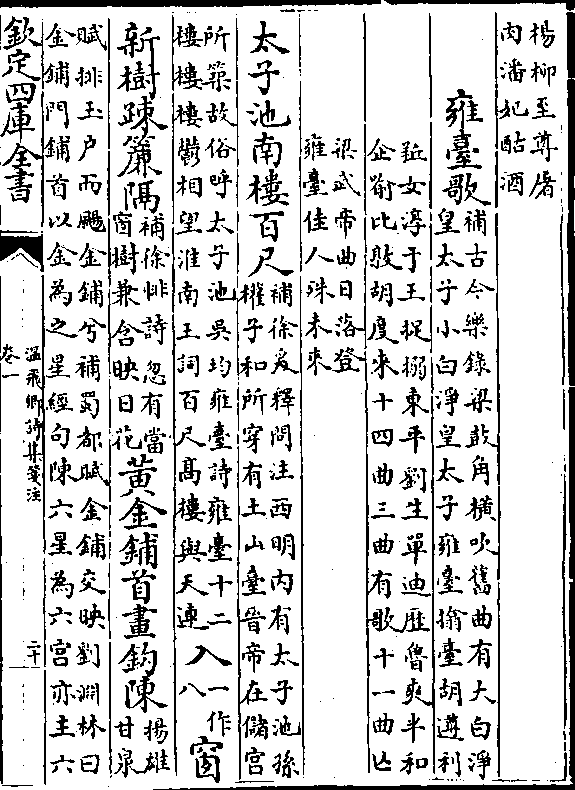 楊柳至尊屠
肉潘妃酤酒
雍臺歌
補古今樂錄梁鼓角橫吹舊曲有大白淨
皇太子小白淨皇太子雍臺搶臺胡遵利
䟐女淳于王捉搦東平劉生單迪歴魯爽半和
企喻比敦胡度來十四曲三曲有歌十一曲亡
梁武帝曲日落登
雍臺佳人殊未來
太子池南樓百尺
補徐爰釋問注西明内有太子池孫
權子和所穿有土山臺晉帝在儲宮
所築故俗呼太子池吳均雍臺詩雍臺十二
樓樓樓鬱相望淮南王詞百尺髙樓與天連
入
一作
八
窗
新樹疎簾隔
補徐悱詩忽有當
窗樹兼含映日花
黃金鋪首畫鈎陳
揚雄
甘泉
賦排玉户而颺金鋪兮補蜀都賦金鋪交映劉淵林曰
金鋪門鋪首以金為之星經句陳六星為六宮亦主六
欽定四庫全書
卷一
溫飛卿詩集箋注
二十